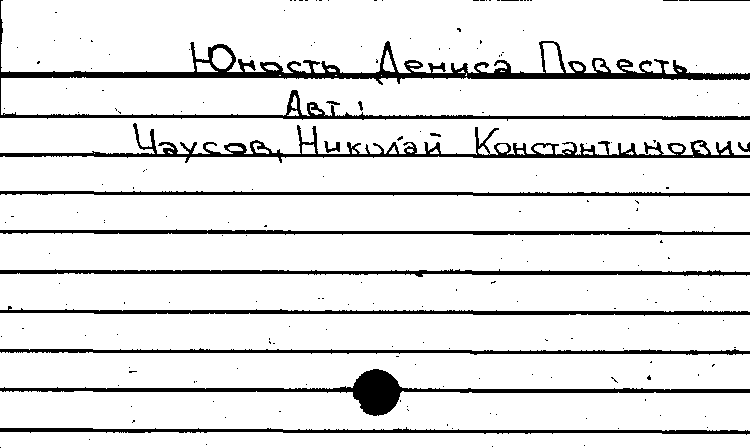 Юность Дениса. Повесть
Авт.:
Чаусов, Николай Константинович